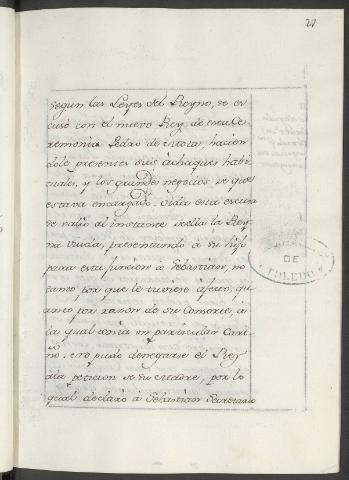 27
segun las Leyes del Reyno, se es
cusó con el nuevo Rey de esta Ce
remonia Pedro de
dole presentes sus achaques habi
tuales, y los grandes negocios de que
estava encargado. Oida esta escusa
se valió al instante de ella la Rey
na viuda, presentando á su hijo
para esta funcion á Sebastian, no
tanto por que le tuviese afecto, qu
anto por razon de su Consorte, á
la qual tenia un particular Cari
ño. no pudo denegarse el Rey
á la peticion de su Madre, por lo
qual declaró á Sebastian Secretario
DE
TOLEDO